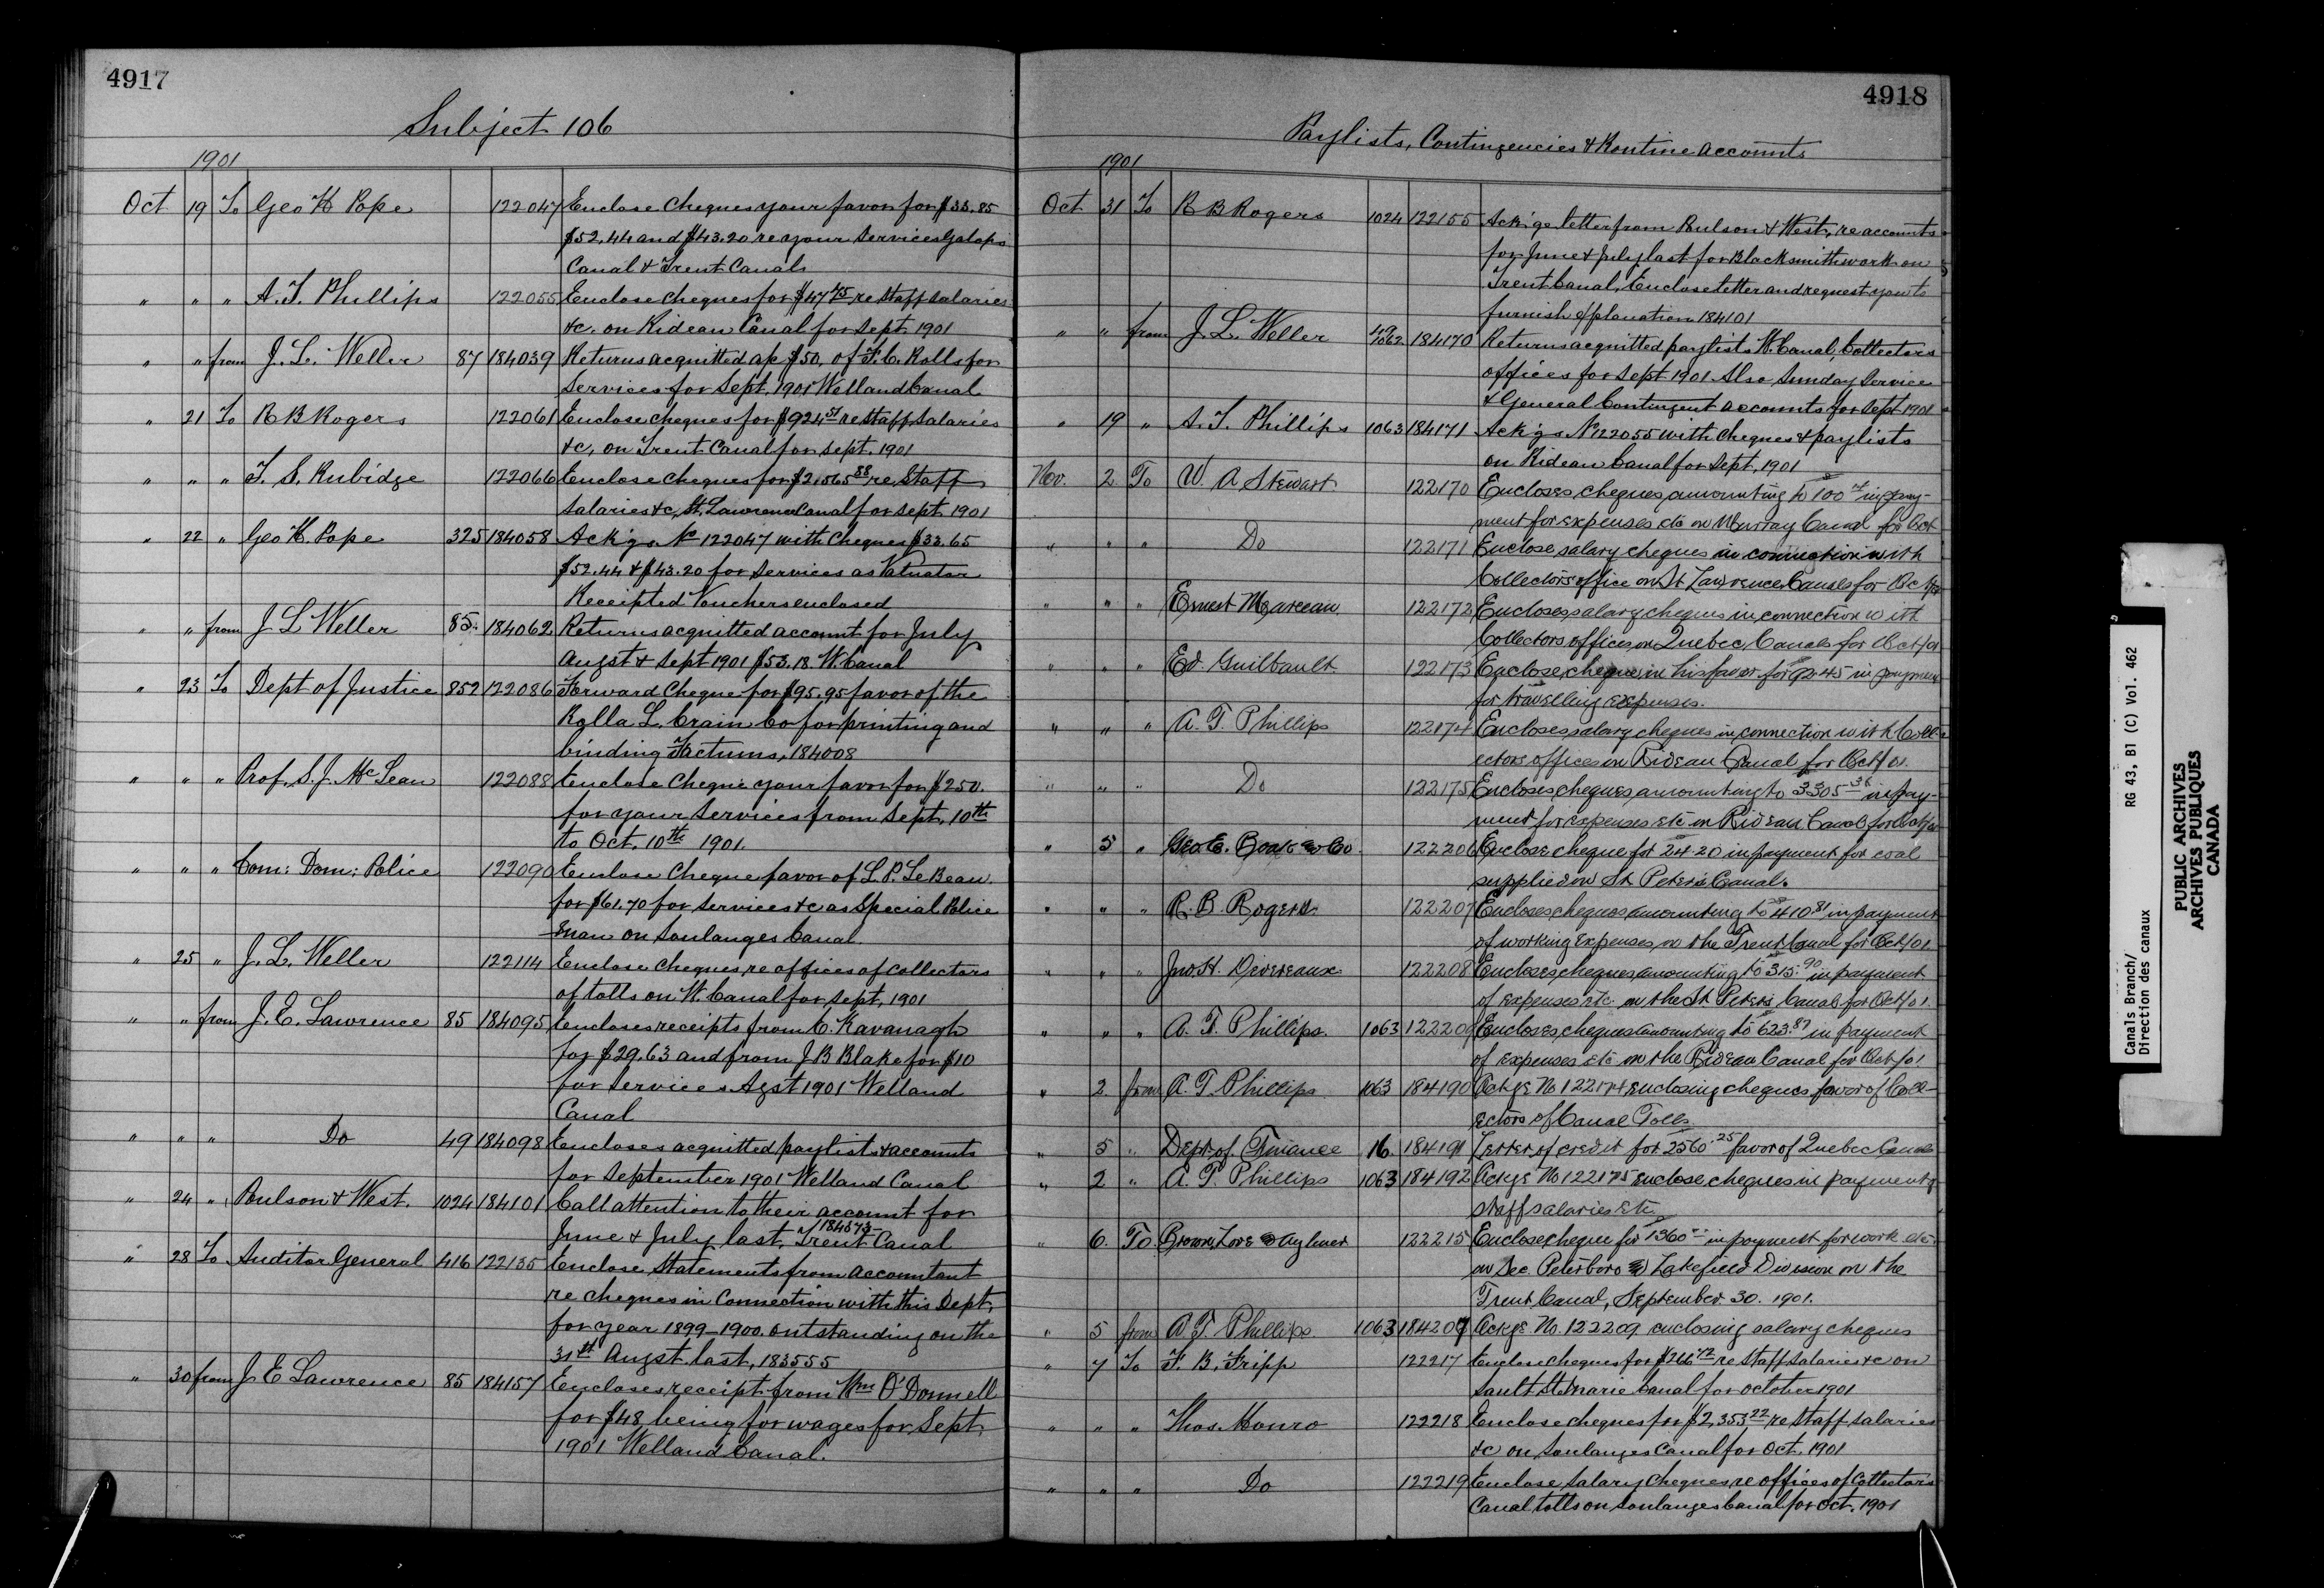 4917
Subject 106
1901
Oct 19 To Geo H Pope 122047 Enclose Cheques your favor for $33.85
$52.44 and $43.20 re your services Galops
Canal & Trent Canals
" " " A. T. Phillips 122055 Enclose cheques for $4745 re staff salaries
&c. on Rideau Canal for Sept 1901
" " from J. L. Weller 87 184039 Returns acquitted a/c $50. of F. C. Rolls for
Services for Sept. 1901 Welland Canal
" 21 To R B Rogers 122061 Enclose cheques for $924 51 re staff salaries
&c, on Trent Canal for Sept. 1901
" " " T. S. Rubidge 122066 Enclose cheques for $2,565 88 re Staff
salaries &c, St. Lawrence Canal for Sept 1901
" 22 " Geo H. Pope 325 184058 Ackgs No 122047 with cheques $33.65
$52.44 & $43.20 for services as Valuator
Receipted Vouchers enclosed
" " from J L Weller 85 184062 Returns acquitted account for July
Augst & Sept 1901 $53.18. W. Canal
" 23 To Dept of Justice 852 122086 Forward Cheque for $95.95 favor of the
Rolla L. Crain Co for printing and
binding Factums, 184008
" " " Prof. S. J. McLean 122088 Enclose Cheque your favor for $250.
for your services from Sept. 10th
to Oct. 10th 1901.
" " " Com: Dom: Police 122090 Enclose Cheque favor of L. P. LeBeau
for $61.70 for services &c as Special Police
man on Soulanges Canal.
" 25 " J. L. Weller 122114 Enclose cheques re offices of collectors
of tolls on W. Canal for Sept, 1901
" " from J. E. Lawrence 85 184095 Encloses receipts from C. Kavanagh
for $29.63 and from J B Blake for $10
for services Agst 1901 Welland
Canal
" " " Do 49 184098 Encloses acquitted paylists & accounts
for September 1901 Welland Canal
" 24 " Poulson & West. 1024 184101 Call attention to their account for
June & July last, Trent Canal
184573
" 28 To Auditor General 416 122135 Enclose Statements from accountant
re cheques in Connection with this Dept,
for year 1899-1900. outstanding on the
31st Augst last, 183555
" 30 from J E Lawrence 85 184157 Encloses receipt from Wm O'Donnell
for $48 being for wages for Sept.
1901 Welland Canal.
4918
Paylists, Contingencies & Routine accounts
1901
Oct 31 To R B Rogers 1024 122155 Ack'ge letter from Poulson & West, re accounts
for June & July last for Blacksmith work on
Trent Canal, Enclose letter and request you to
furnish explanation 184101
" " from J. L. Weller 49 1062 184170 Returns acquitted paylists W. Canal, Collectors
offices for Sept 1901 Also Sunday Service
& General Contingent accounts for Sept 1901
" 19 " A. T. Phillips 1063 184171 Ackgs No 122055 with cheques & paylists
on Rideau Canal for Sept, 1901
Nov. 2 To W. A Stewart 122170 Encloses cheques amounting to 100 in pay-
ment for expenses etc on Murray Canal for Oct
" " " Do 122171 Enclose salary cheques in connection with
Collectors office on St Lawrence Canals for Oct/01
" " " Ernest Marceau 122172 Encloses salary cheques in connection with
Collectors offices on Quebec Canals for Oct/01
" " " Ed. Guilbault 122173 Enclose cheque in his favor for 92.45 in payment
for travelling expenses.
" " " A. T. Phillips 122174 Encloses salary cheques in connection with Coll-
ectors offices on Rideau Canal for Oct/01.
" " " Do 122175 Encloses cheques amounting to 3305 36 in pay-
ment for expenses etc on Rideau Canal for Oct/01
" 5 " Geo. E. & Co. 122206 Enclose cheque for 24.20 in payment for coal
supplied on St. Peter's Canal.
" " " R. B. Rogers 122207 Encloses cheques amounting to 410 81 in payment
of working expenses on the Trent Canal for Oct/01
" " " Jno H. Devereaux 122208 Encloses cheques amounting to 315.90 in payment
of expenses etc. on the St. Peter's Canal for Oct/01.
" " " A. T. Phillips. 1063 122209 Encloses cheques amounting to 623.87 in payment
of expenses etc on the Rideau Canal for Oct/01
" 2 from A. T. Phillips 1063 184190 Ackge No 122174 enclosing cheques favor of Coll-
ectors of Canal Tolls
" 5 " Dept. of Finance 16. 184191 Letter of credit for 2560.25 favor of Quebec Canals
" 2 " A. T. Phillips 1063 184192 Ackge No 122175 enclose cheques in payment of
staff salaries etc.
" 6. To Brown, Love & Aylmer 122215 Enclose cheque for 1360 in payment for work etc
on Sec. Peterboro & Lakefield Division on the
Trent Canal, September 30. 1901.
" 5 from A. T. Phillips 1063 184207 Ackge No. 122209 enclosing salary cheques
" 7 To F. B. Fripp 122217 Enclose cheques for $266 72 re staff salaries &c on
Sault Ste Marie Canal for October 1901
" " " Thos. Monro 122218 Enclose cheques for $2,353 22 re staff salaries
&c on Soulanges Canal for Oct. 1901
" " " Do 122219 Enclose Salary Cheques re offices of Collectors
Canal tolls on Soulanges Canal for Oct. 1901
Canals Branch/
Direction des canaux
RG 43, B1 (C) Vol. 462
PUBLIC ARCHIVES
ARCHIVES PUBLIQUES
CANADA